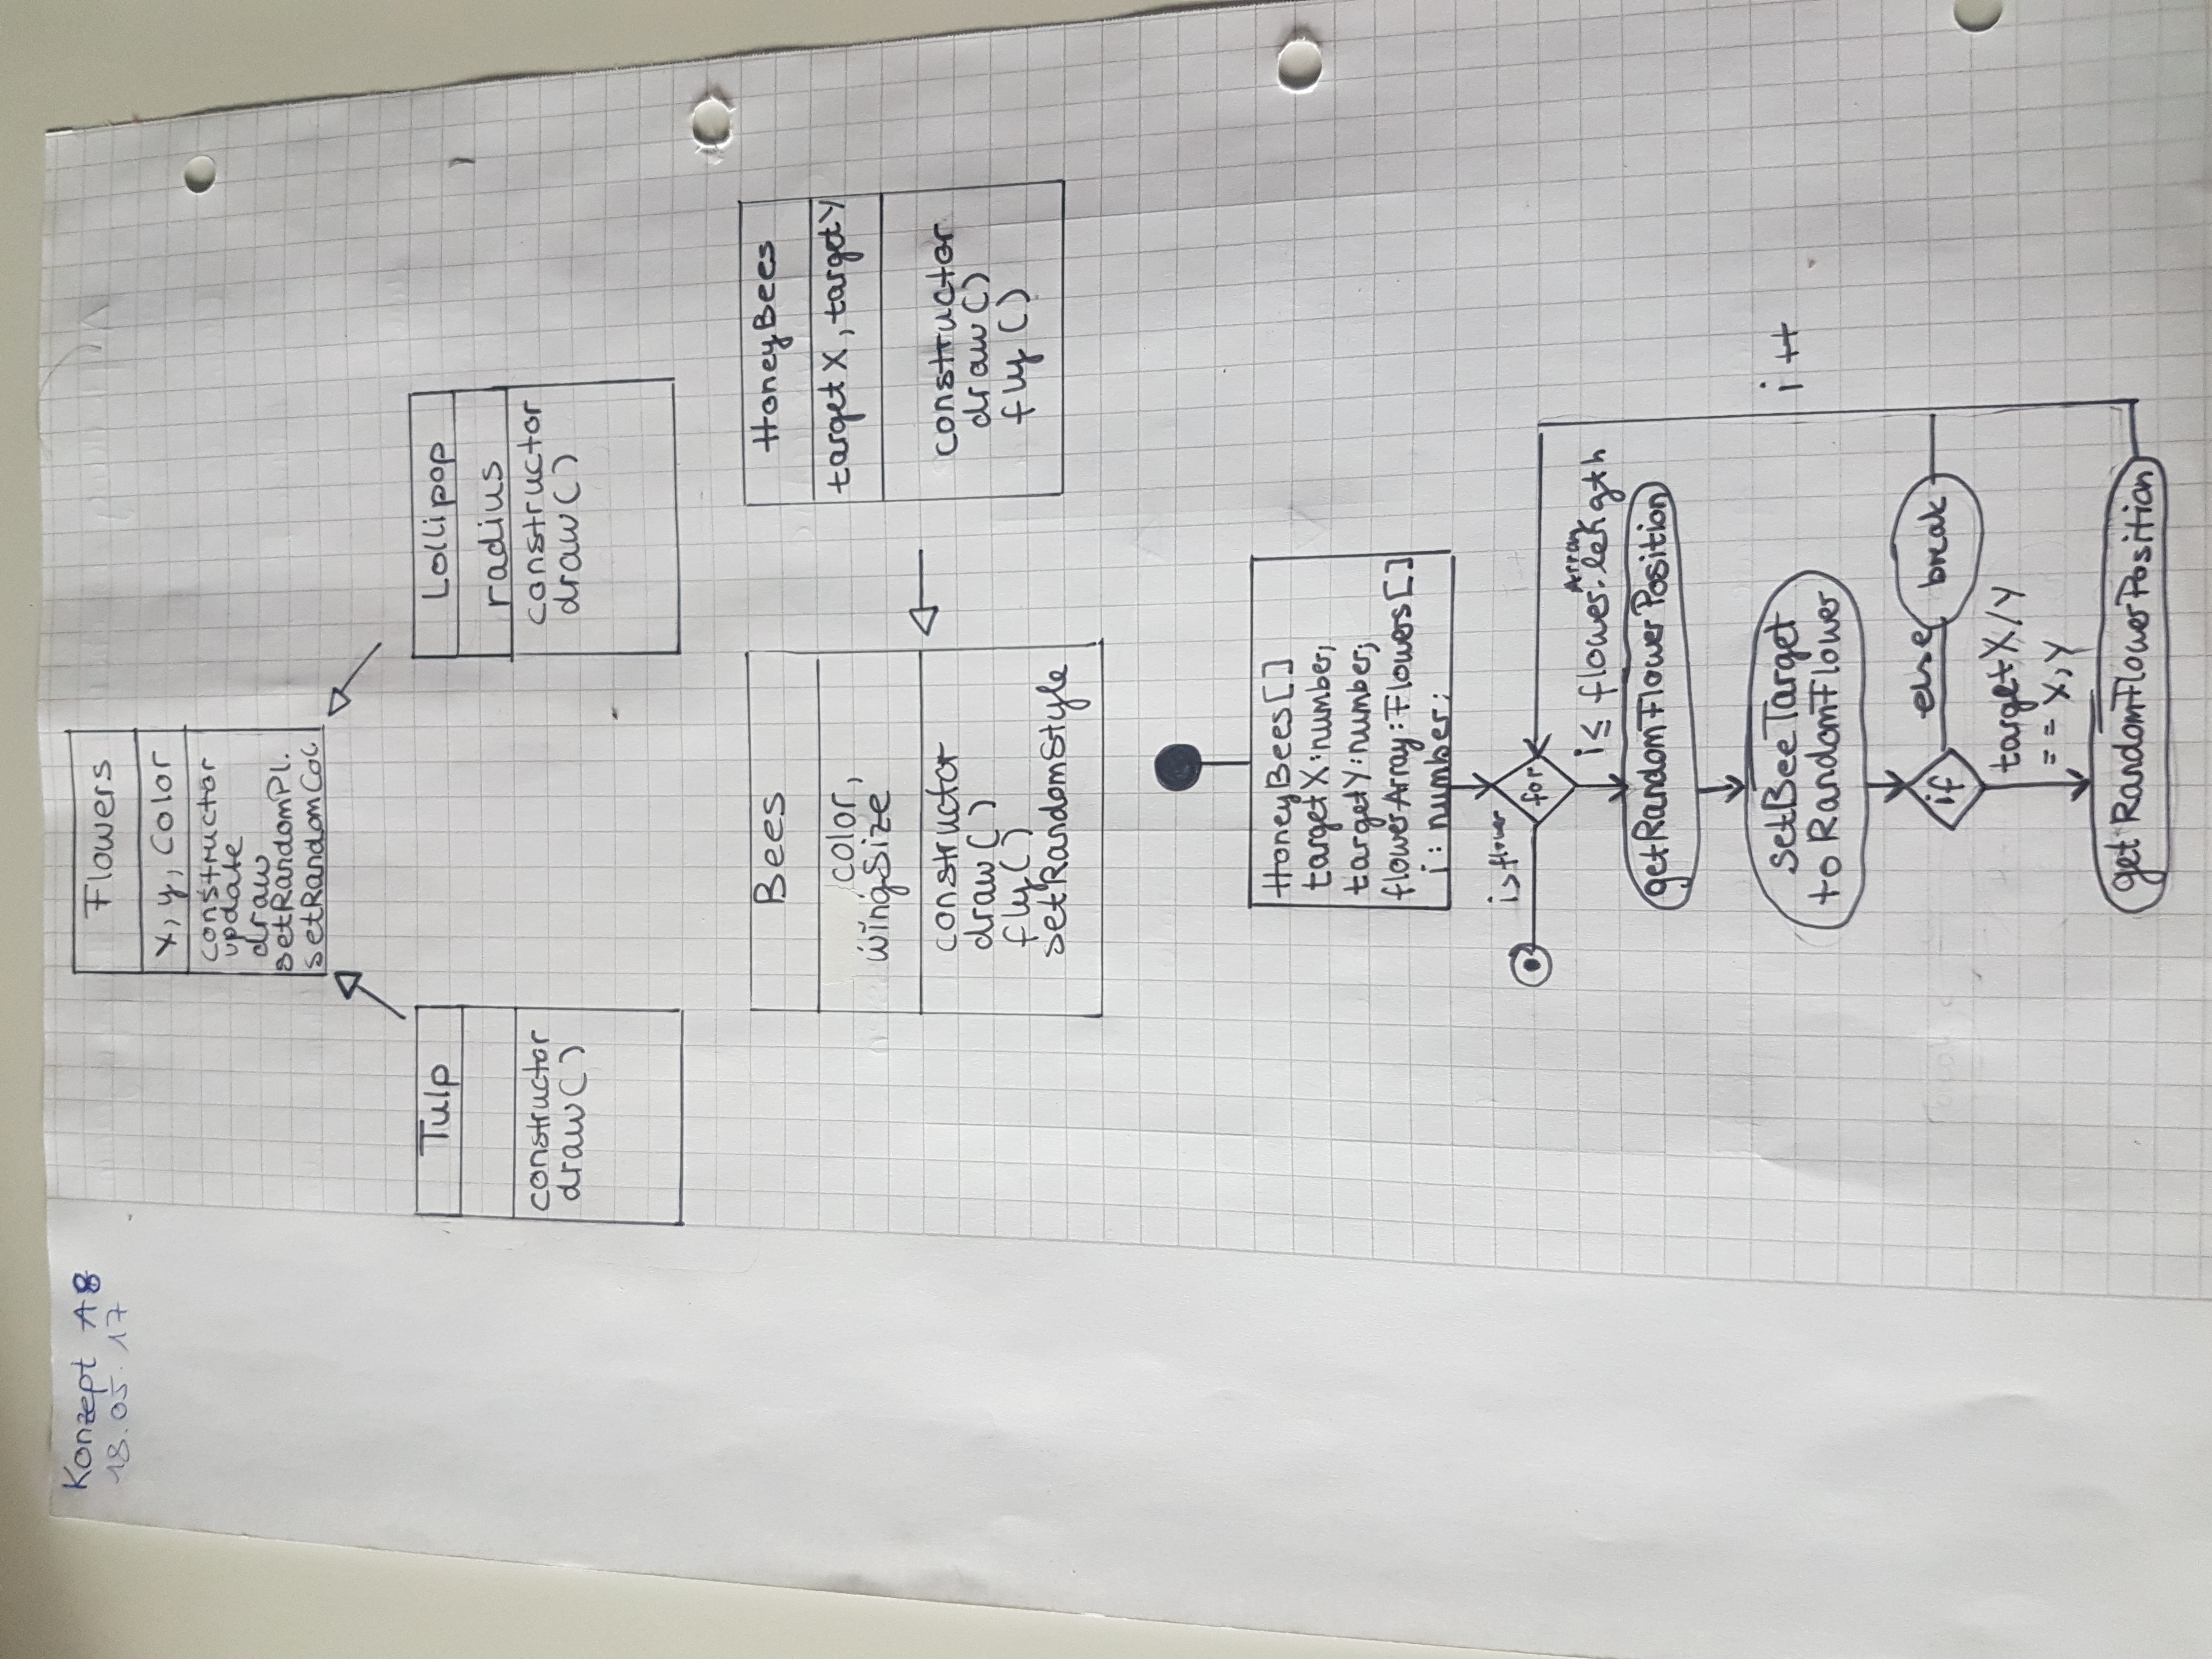 Konzept A8
18.05.17
Flowers
x, y, Color
constructor
update
draw
setRandomPl.
setRandomCol
Tulp
constructor
draw()
Lollipop
radius
constructor
draw()
Bees
color,
wingSize
constructor
draw()
fly()
setRandomStyle
HoneyBees
targetX, targetY
constructor
draw()
fly()
HoneyBees[]
targetX:number;
targetY:number;
flowerArray:Flowers[]
i: number;
i> flower
for
i≤ flowerArray.length
getRandomFlowerPosition
setBeeTarget
to RandomFlower
i++
if
else
break
targetX/Y
== X,Y
getRandomFlowerPosition